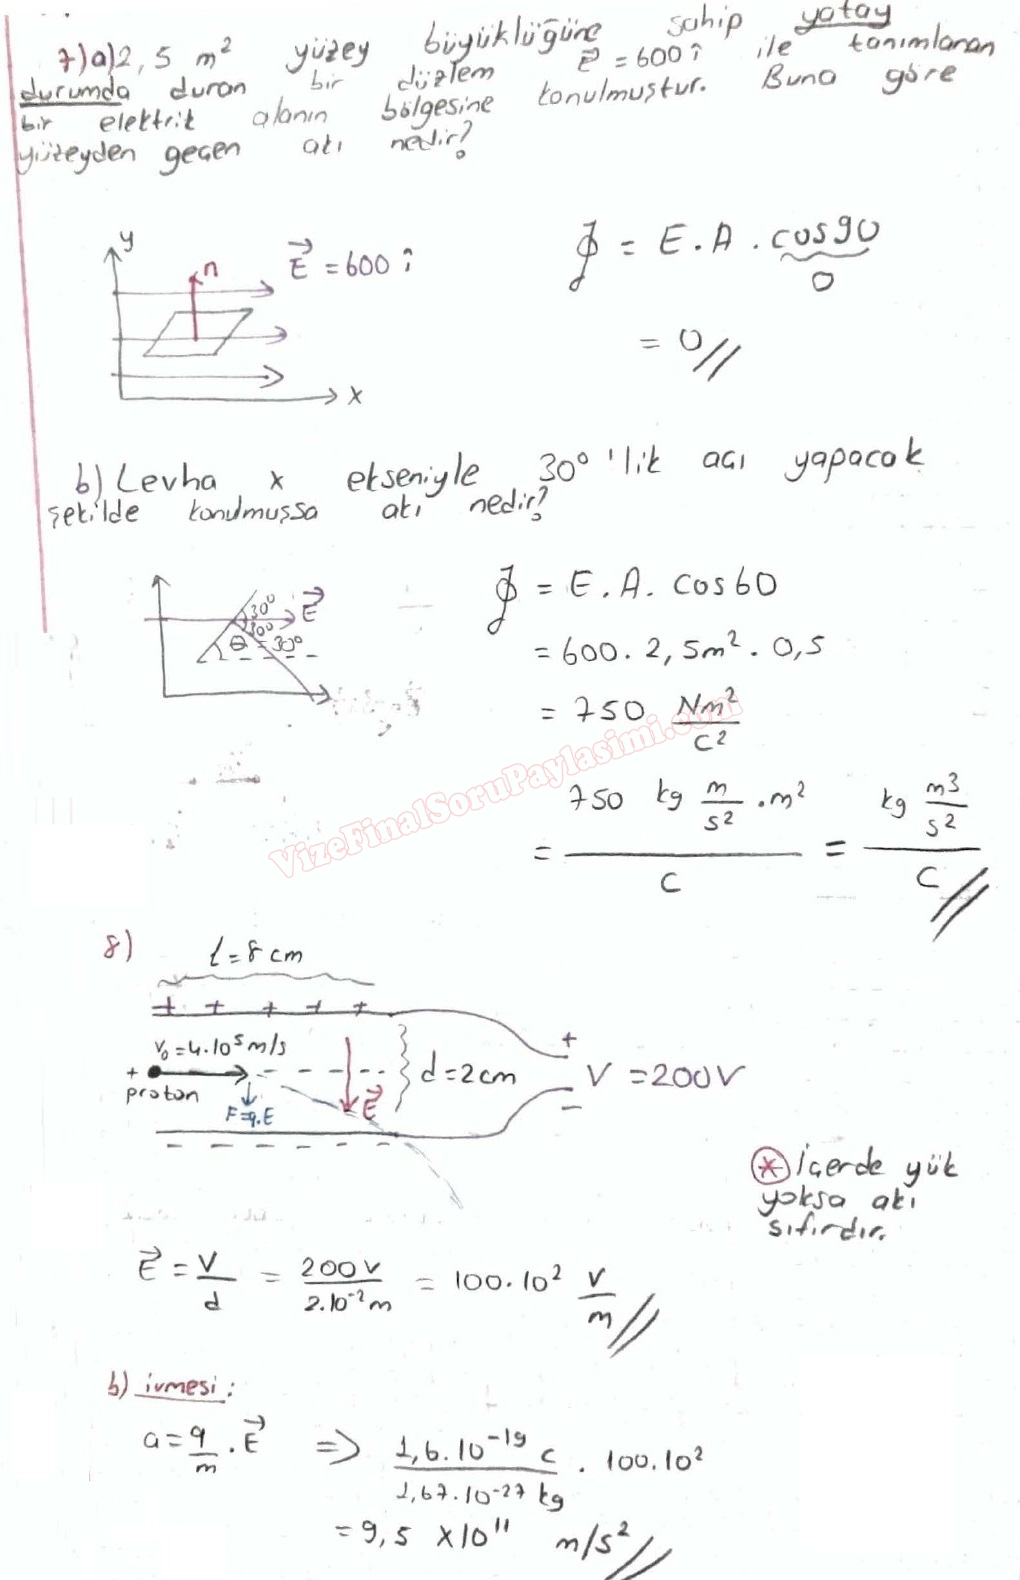 7)a)2,5 m² yüzey büyüklüğüne sahip yatay
durumda duran bir düzlem E = 600 î ile tanımlanan
bir elektrik alanın bölgesine konulmuştur. Buna göre
yüzeyden geçen akı nedir?
y
n
E = 600 î
x
ϕ = E . A . cos90
0
= 0//
b) Levha x ekseniyle 30° 'lik açı yapacak
şekilde konulmuşsa akı nedir?
30° E
30°
θ = 30°
ϕ = E . A . cos60
= 600 . 2,5m² . 0,5
= 750 Nm²/C²
= 750 kg m/s² . m² / C = kg m³/s² / C //
VizeFinalSoruPaylasimi.com
8)
l = 8 cm
+ + + + +
V₀ = 4.10⁵ m/s
+ proton
F=q.E
E
d = 2 cm
+
V = 200V
-
- - - - - -
* İçerde yük
yoksa akı
sıfırdır.
E = V/d = 200V / 2.10⁻² m = 100.10² V/m //
b) ivmesi :
a = q/m . E ⇒ 1,6.10⁻¹⁹ C / 1,67.10⁻²⁷ kg . 100.10²
= 9,5 x10¹¹ m/s² //